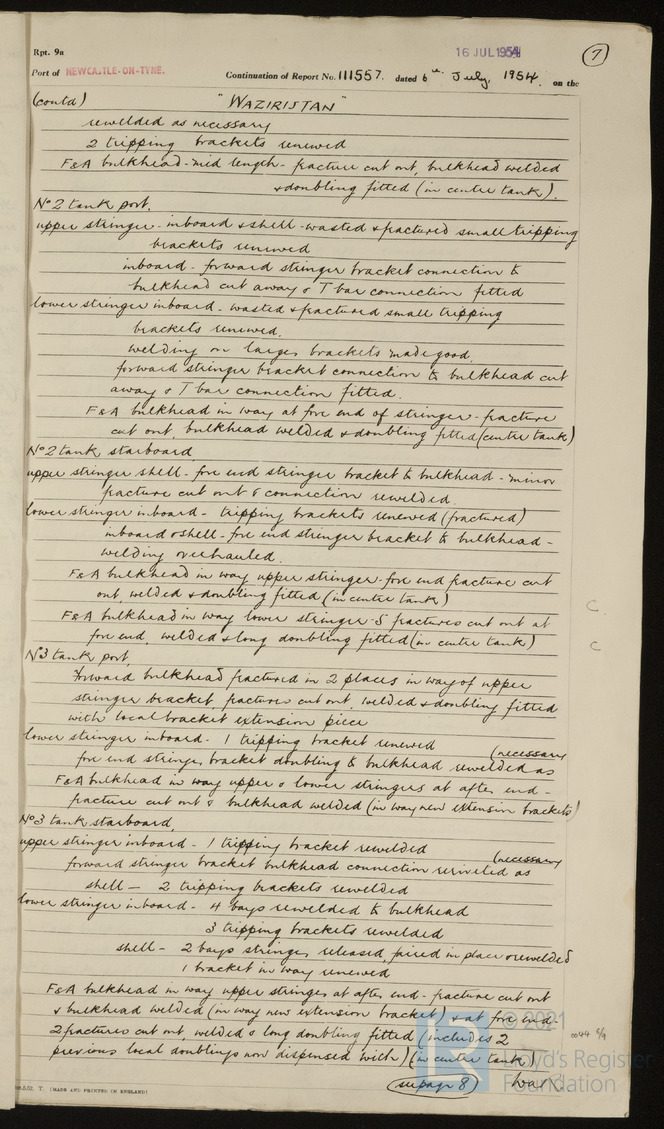 Rpt. 9a
16 JUL 1954
7
Port of NEWCASTLE-ON-TYNE. Continuation of Report No. 111557. dated 6th July, 1954. on the
(contd) "WAZIRISTAN"
rewelded as necessary
2 tripping brackets renewed
F&A bulkhead - mid length - fracture cut out, bulkhead welded
& doubling fitted (in centre tank).
No 2 tank port.
upper stringer - inboard & shell - wasted & fractured small tripping
brackets renewed
inboard - forward stringer bracket connection to
bulkhead cut away & T bar connection fitted
lower stringer inboard - wasted & fractured small tripping
brackets renewed.
welding on larger brackets made good.
forward stringer bracket connection to bulkhead cut
away & T bar connection fitted.
F&A bulkhead in way at fore end of stringer - fracture
cut out, bulkhead welded & doubling fitted (centre tank)
No 2 tank starboard
upper stringer shell - fore end stringer bracket to bulkhead - minor
fracture cut out & connection rewelded.
lower stringer inboard - tripping brackets renewed (fractured)
inboard & shell - fore end stringer bracket to bulkhead -
welding overhauled.
F&A bulkhead in way upper stringer - fore end fracture cut
out, welded & doubling fitted (in centre tank)
F&A bulkhead in way lower stringer - 5 fractures cut out at
fore end, welded & long doubling fitted (in centre tank)
C.
C
No 3 tank port,
Forward bulkhead fractured in 2 places in way of upper
stringer bracket, fractures cut out, welded & doubling fitted
with local bracket extension piece
lower stringer inboard - 1 tripping bracket renewed
fore end stringer bracket doubling to bulkhead rewelded as (necessary
F&A bulkhead in way upper & lower stringers at after end -
fracture cut out & bulkhead welded (in way new extension brackets)
No 3 tank starboard,
upper stringer inboard - 1 tripping bracket rewelded
forward stringer bracket bulkhead connection reriveted as (necessary
shell - 2 tripping brackets rewelded
lower stringer inboard - 4 bays rewelded to bulkhead
3 tripping brackets rewelded
shell - 2 bays stringer released, faired in place & rewelded
1 bracket in way renewed
F&A bulkhead in way upper stringer at after end - fracture cut out
& bulkhead welded (in way new extension bracket) & at fore end -
2 fractures cut out, welded & long doubling fitted (includes 2
previous local doublings now dispensed with) (in centre tank)
(see page 8)
© 2021
Lloyd's Register
Foundation
T. (MADE AND PRINTED IN ENGLAND)